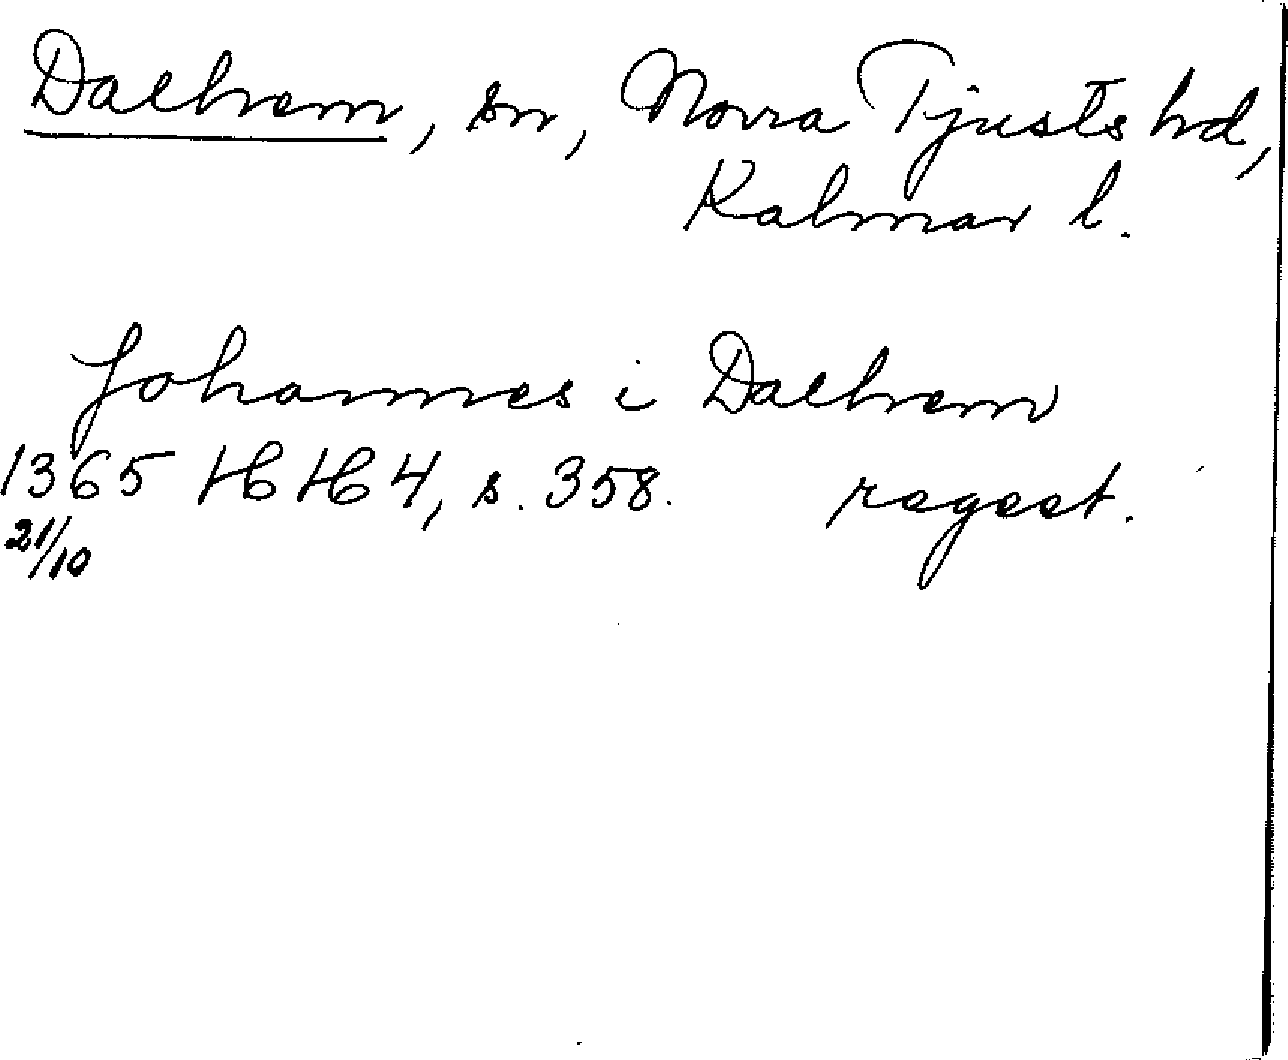 Dalhem, sn, Norra Tjusts hd,
Kalmar l.
Johannes i Dalhem
1365 HH 4, s. 358. regest.
21/10